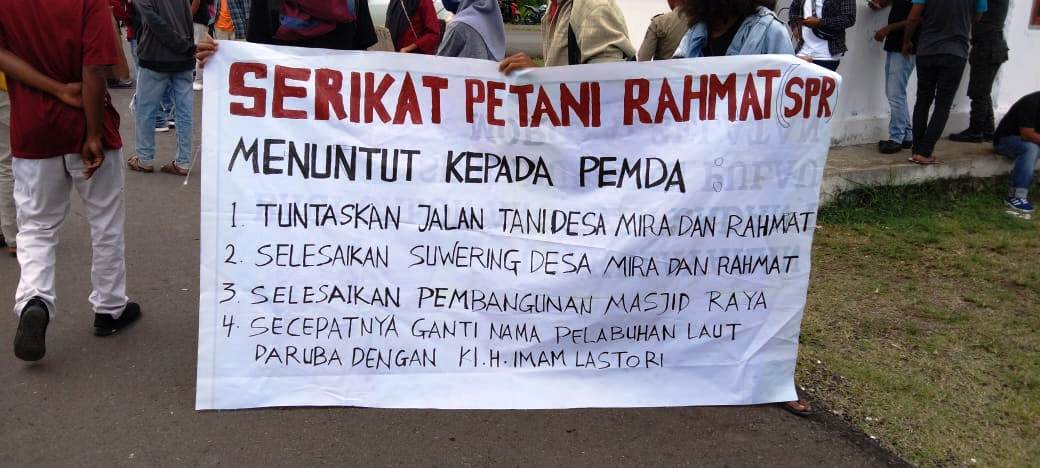 SERIKAT PETANI RAHMAT (SPR)
MENUNTUT KEPADA PEMDA :
1. TUNTASKAN JALAN TANI DESA MIRA DAN RAHMAT
2. SELESAIKAN SUWERING DESA MIRA DAN RAHMAT
3. SELESAIKAN PEMBANGUNAN MASJID RAYA
4. SECEPATNYA GANTI NAMA PELABUHAN LAUT
DARUBA DENGAN KI.H. IMAM LASTORI